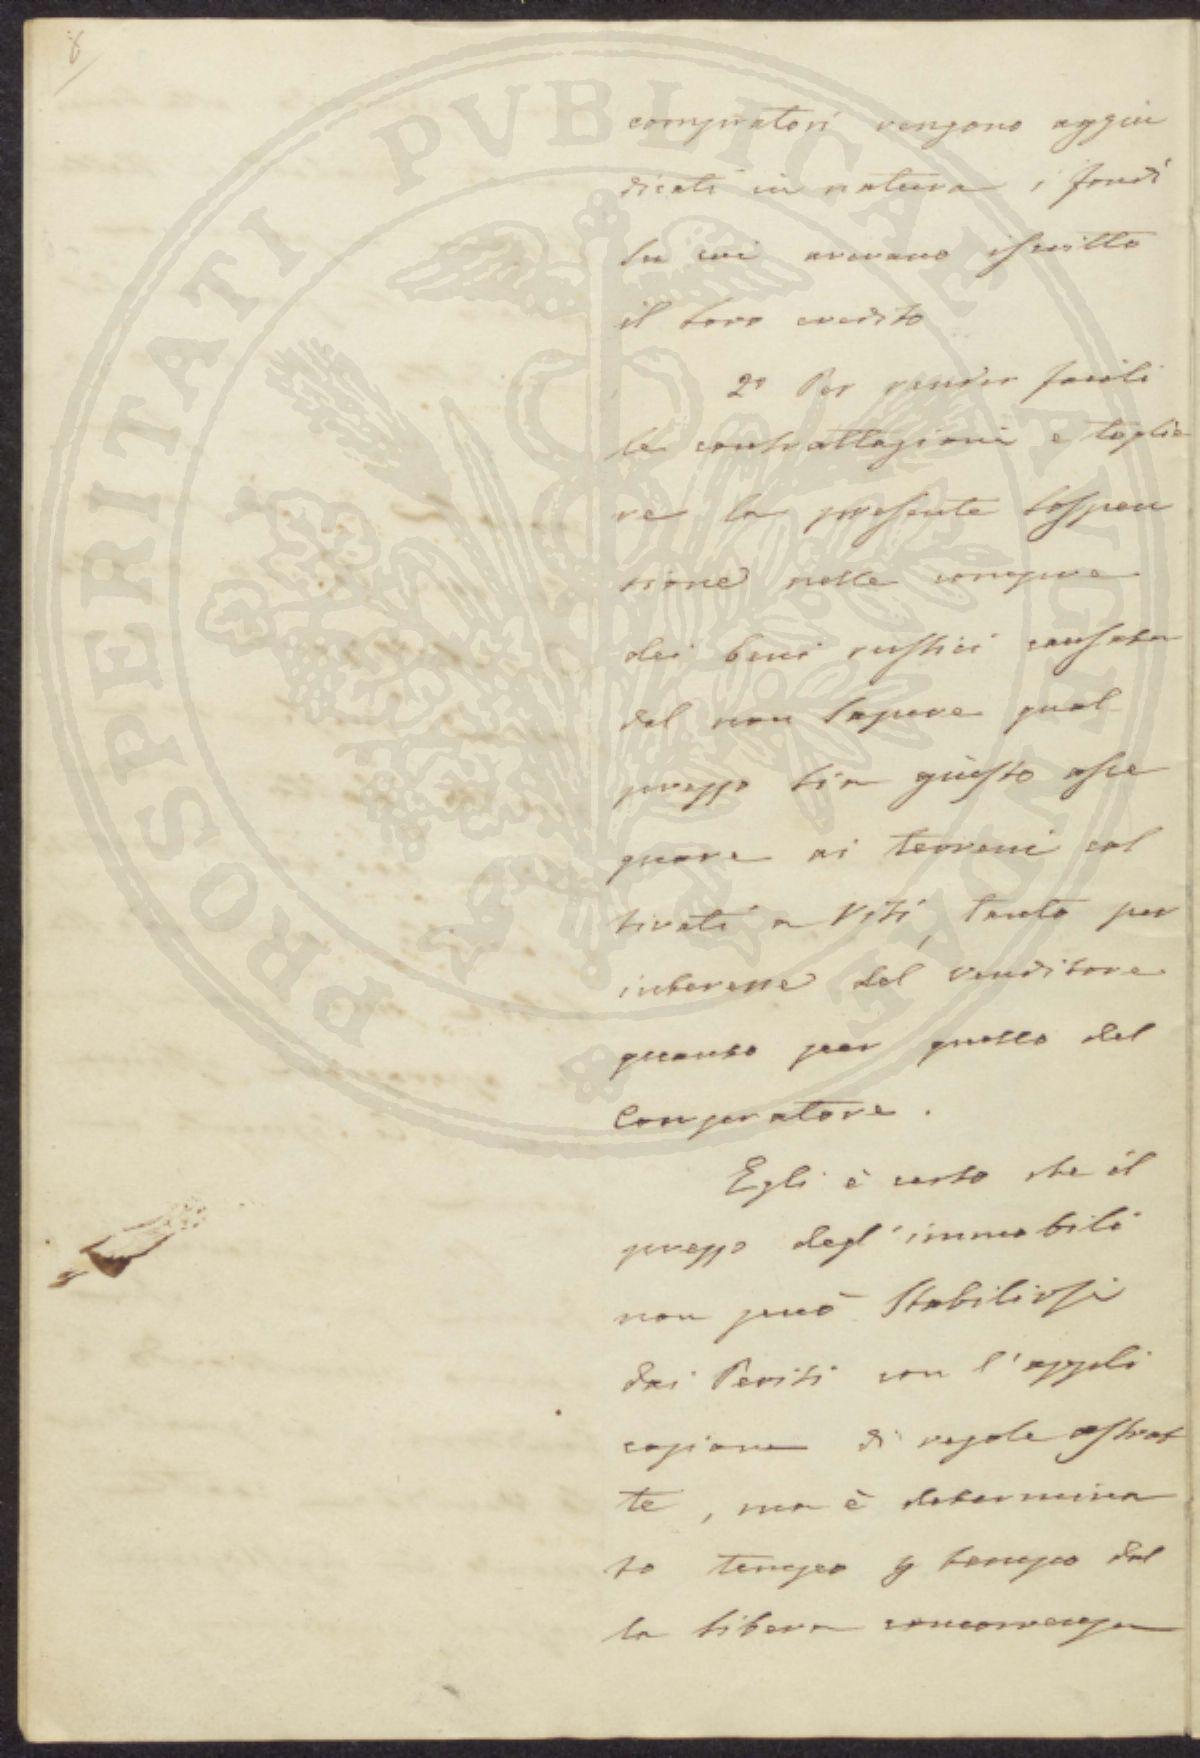 8
PROSPERITATI PVBLICAE AVGENDAE
compratori vengono aggiu
dicati in natura i fondi
su cui avevano iscritto
il loro credito
2° Per render facili
le contrattazioni e toglie
re la presente sospen
sione nelle compre
dei beni rustici causata
dal non sapere qual
prezzo sia giusto asse
gnare ai terreni col
tivati a Viti, tanto per
interesse del venditore
quanto per quello del
Compratore.
Egli è certo che il
prezzo degl'immobili
non può stabilirsi
dai Periti con l'appli
cazione di regole astrat
te, ma è determina
to tempo p tempo dal
la libera concorrenza